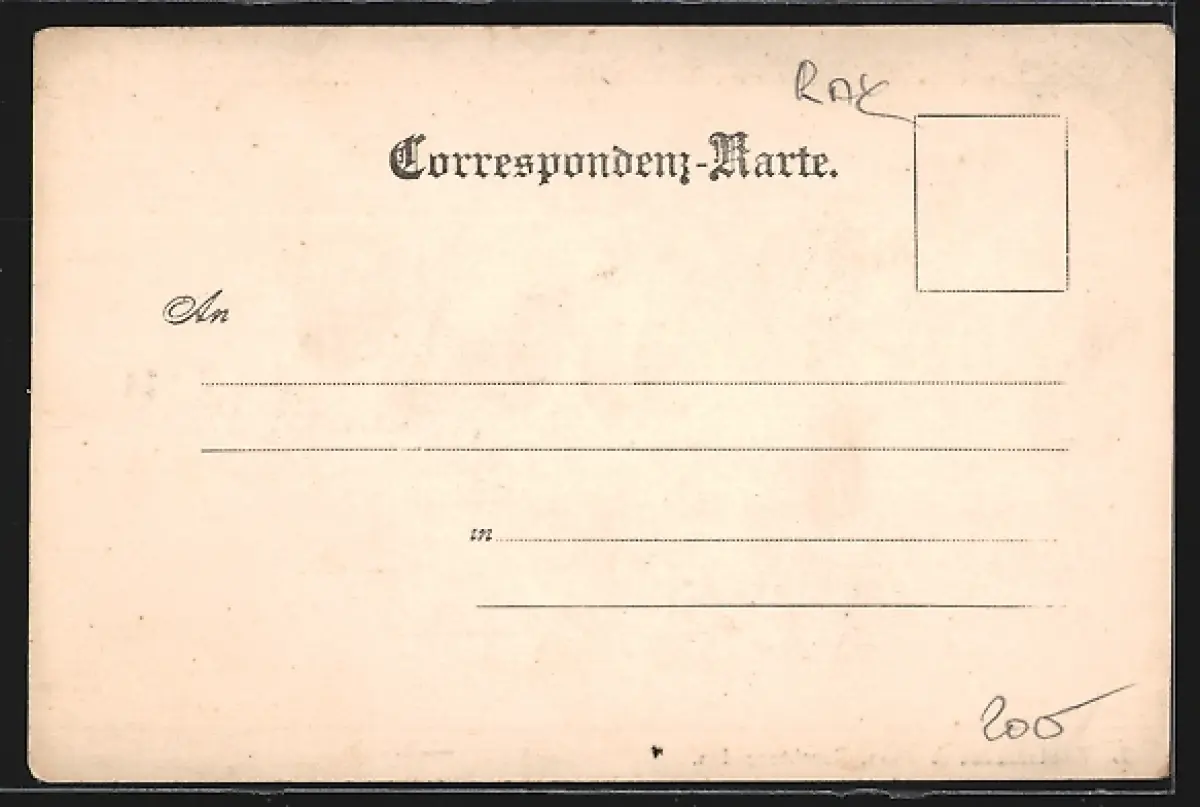 RAX
Correspondenz-Karte.
An
in
200